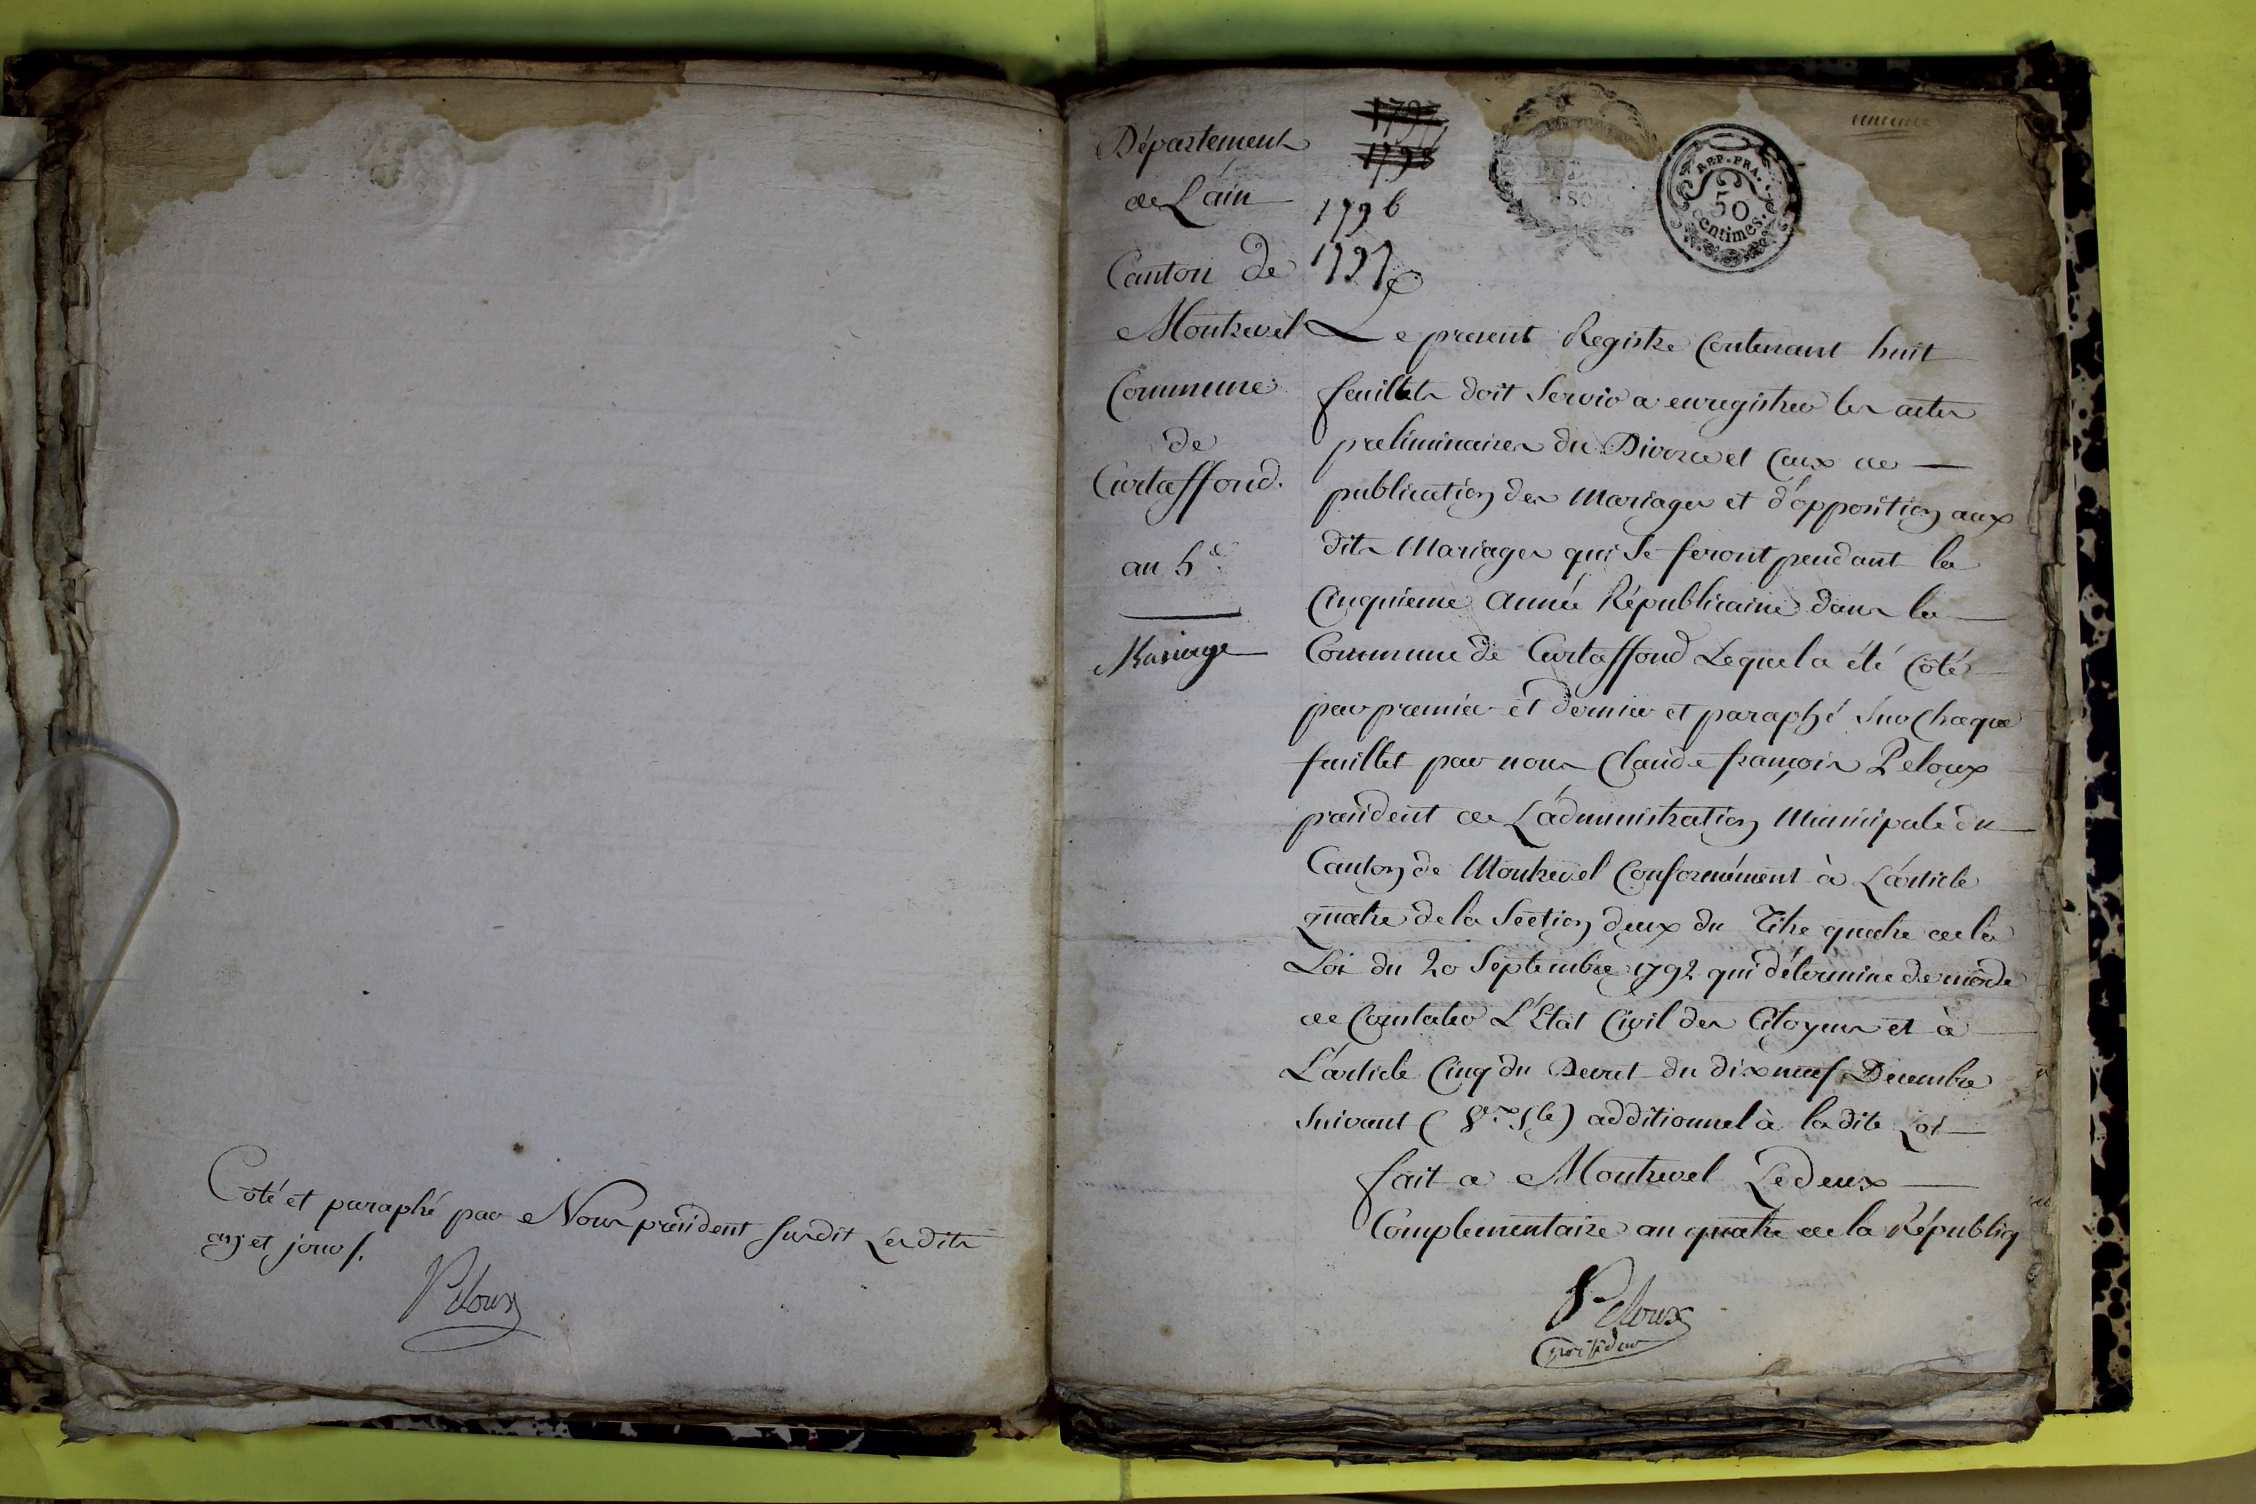 Coté et paraphé par Nous président susdit Lesdits
an et jour /.
Peloux
Département
de L'ain
Canton de
Montrevel
Commune
de
Curtaffond.
an 5e
Mariage
1797
1798
1796
1797
REP. FRA.
50
centimes.
SOLS
unieme
Le present Registre Contenant huit
feuillets doit Servir a enregistrer les actes
préliminaires du Divorce et Ceux de
publication des Mariages et d'opposition aux
dits Mariages qui Se feront pendant la
Cinquieme Année Républicaine dans la
Commune de Curtaffond Lequel a été Côté
par premier et dernier et paraphé Sur Chaque
feuillet par nous Claude françois Peloux
président de L'administration Municipale du
Canton de Montrevel Conformément à L'article
quatre de la Section deux du Titre quatre de la
Loi du 20 Septembre 1792 qui détermine de mode
de Constater L'Etat Civil des Citoyens et à
L'article Cinq du Decret du dix neuf Décembre
Suivant ( Vx Sle ) additionnel à la dite Loi
fait a Montrevel Le Deux
Complementaire an quatre de la Républiq
Peloux
président